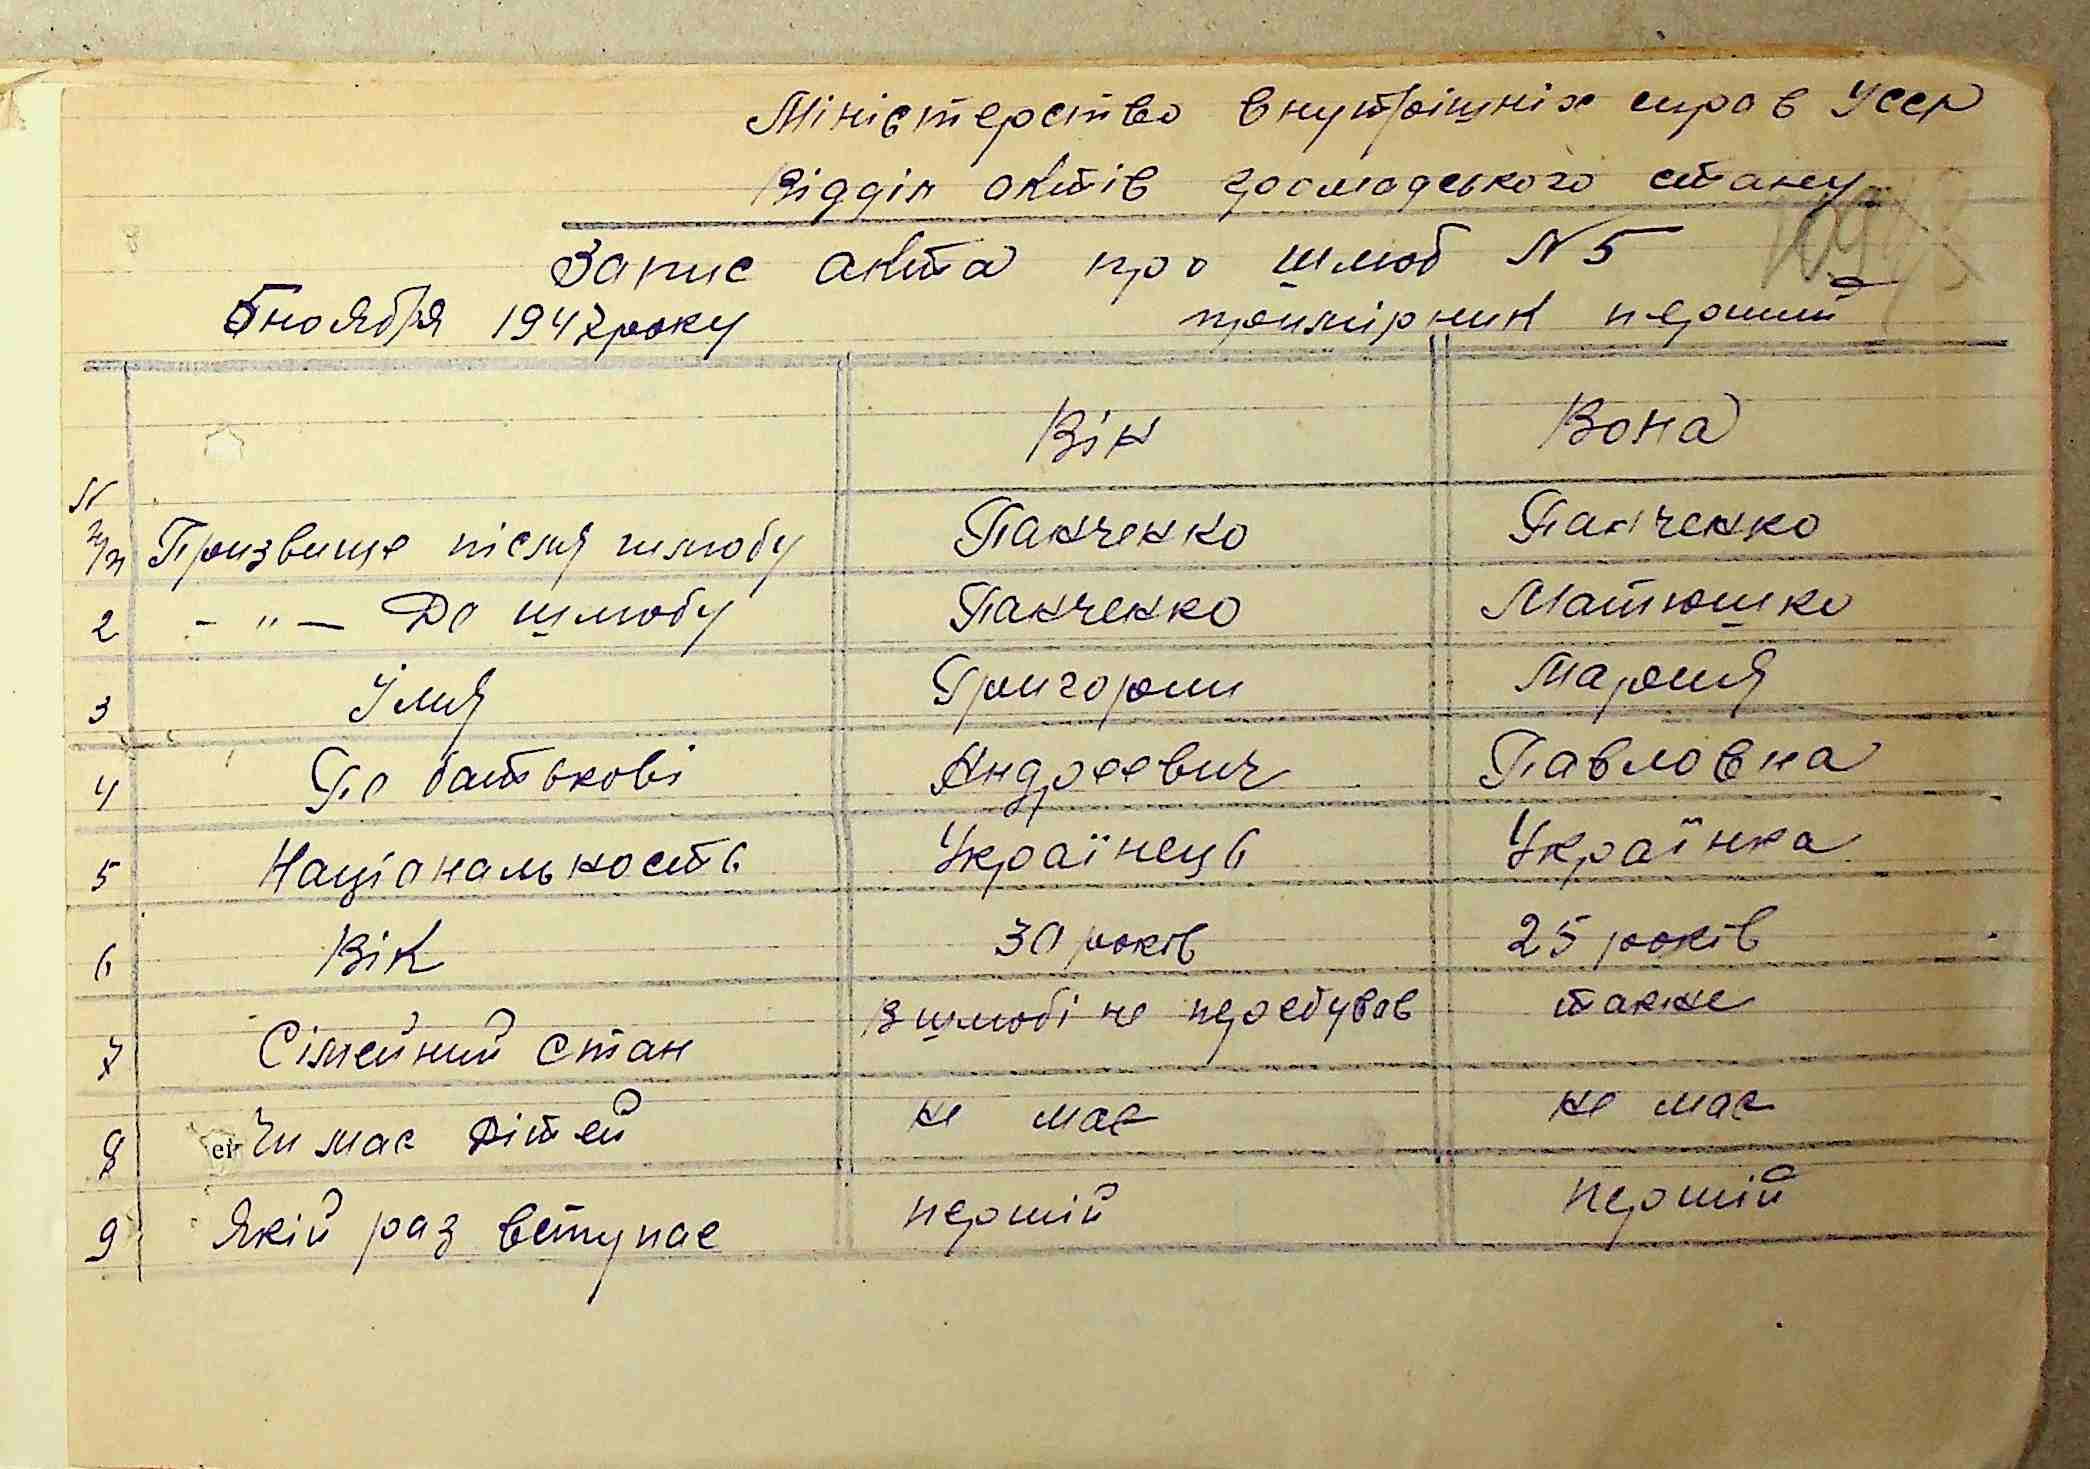 Міністерство внутрішніх справ УССР
Відділ актів громадського стану
Запис акта про шлюб N 5
5 ноября 1947 року примірник перший
Він Вона
N п/п Призвище після шлюбу Панченко Панченко
2 - " - До шлюбу Панченко Матюшко
3 Імя Григории Мария
4 По батькові Андреевич Павловна
5 Національность Українець Українка
6 Вік 30 років 25 років
7 Сімейний стан В шлюбі не перебував также
8 Чи має дітей не має не має
9 Якій раз вступає першій першій